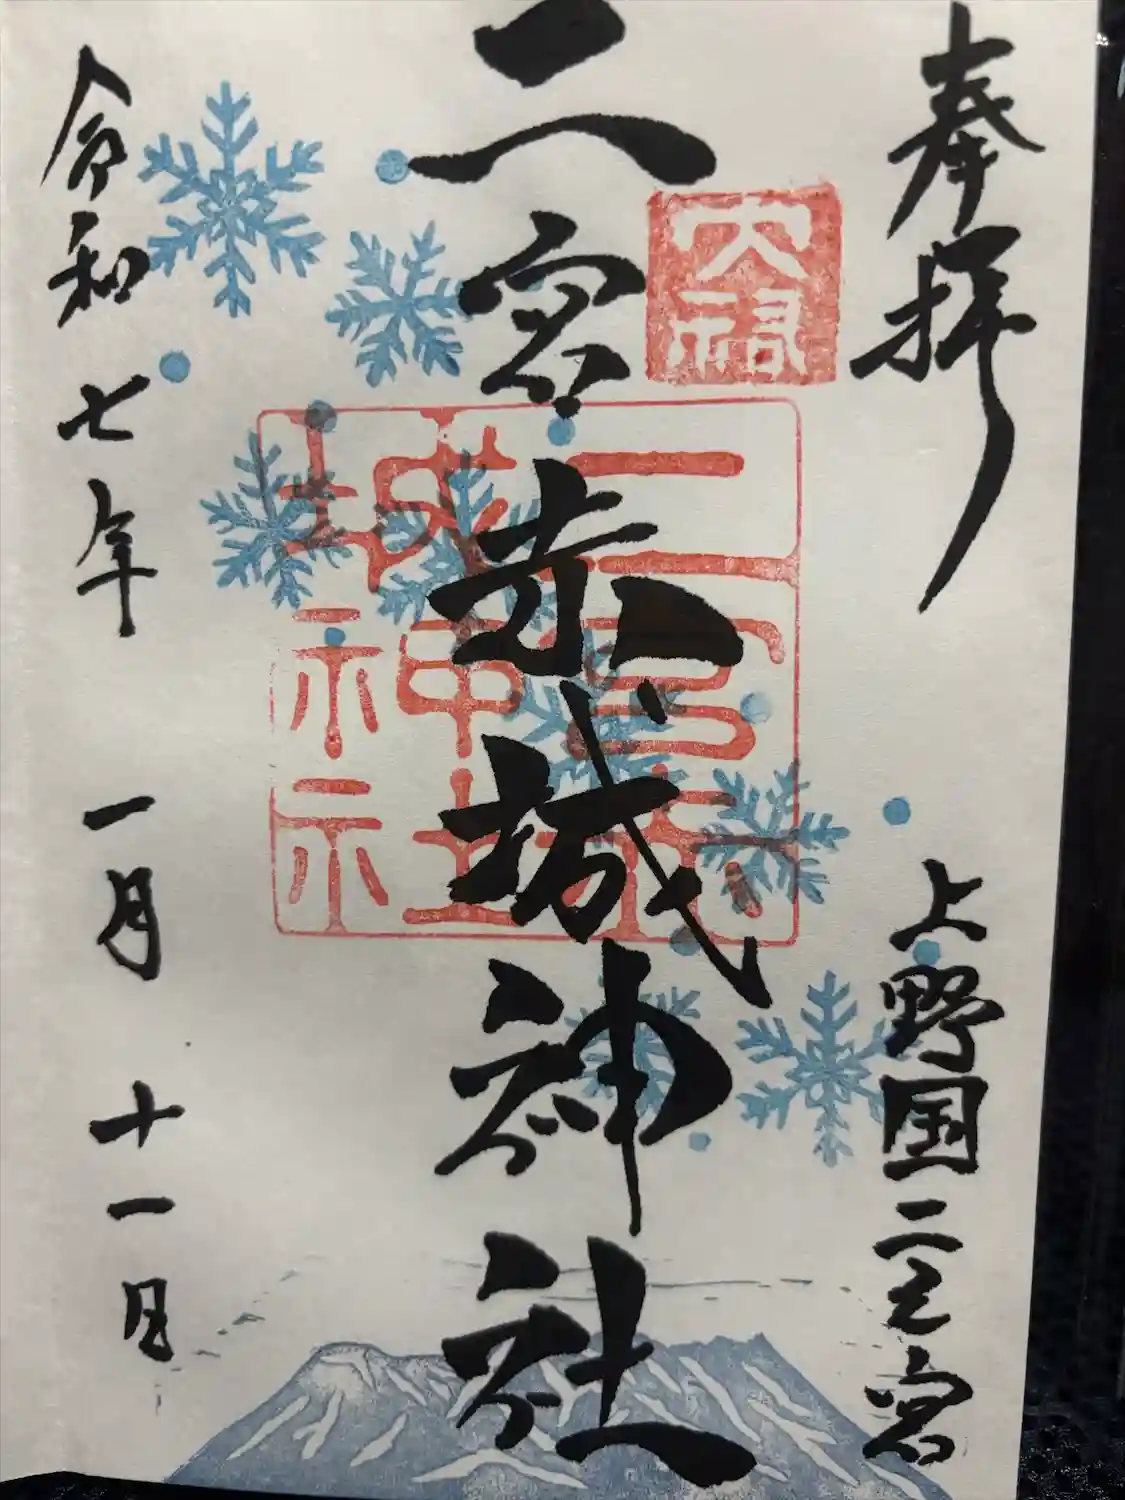 奉拝
上野国二之宮
二宮赤城神社
二宮赤
城神社
令和七年 一月 十一日